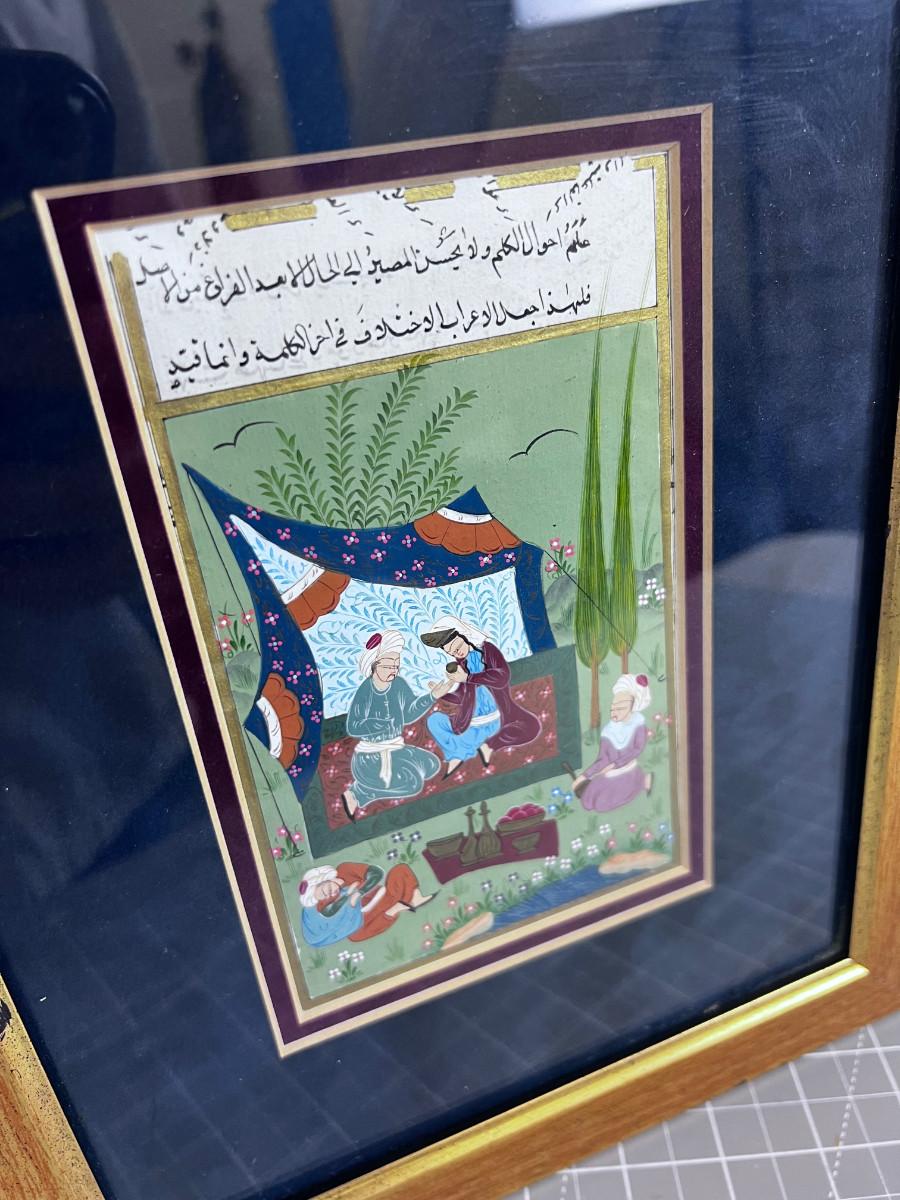 علم احوال الكلم ولا يحسن المصير الي الحال الا بعد الفراغ من الاصل
فلهذا جعل الاعراب الاختلاف في اخر الكلمة وانما قيد